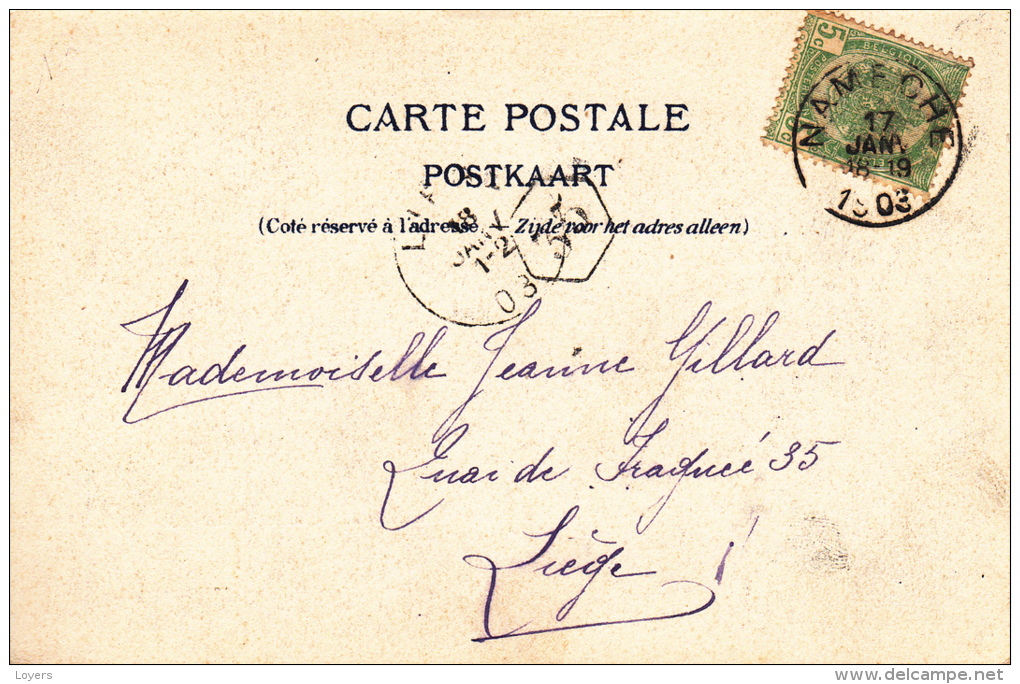 5c
BELGIQUE
NAMECHE
17
JANV.
18-19
1903
CARTE POSTALE
POSTKAART
(Coté réservé à l'adresse. — Zijde voor het adres alleen)
18
JANV
1-2
03
Mademoiselle Jeanne Gillard
Quai de Fragnée 35
Liège
Loyers
delcampe.net